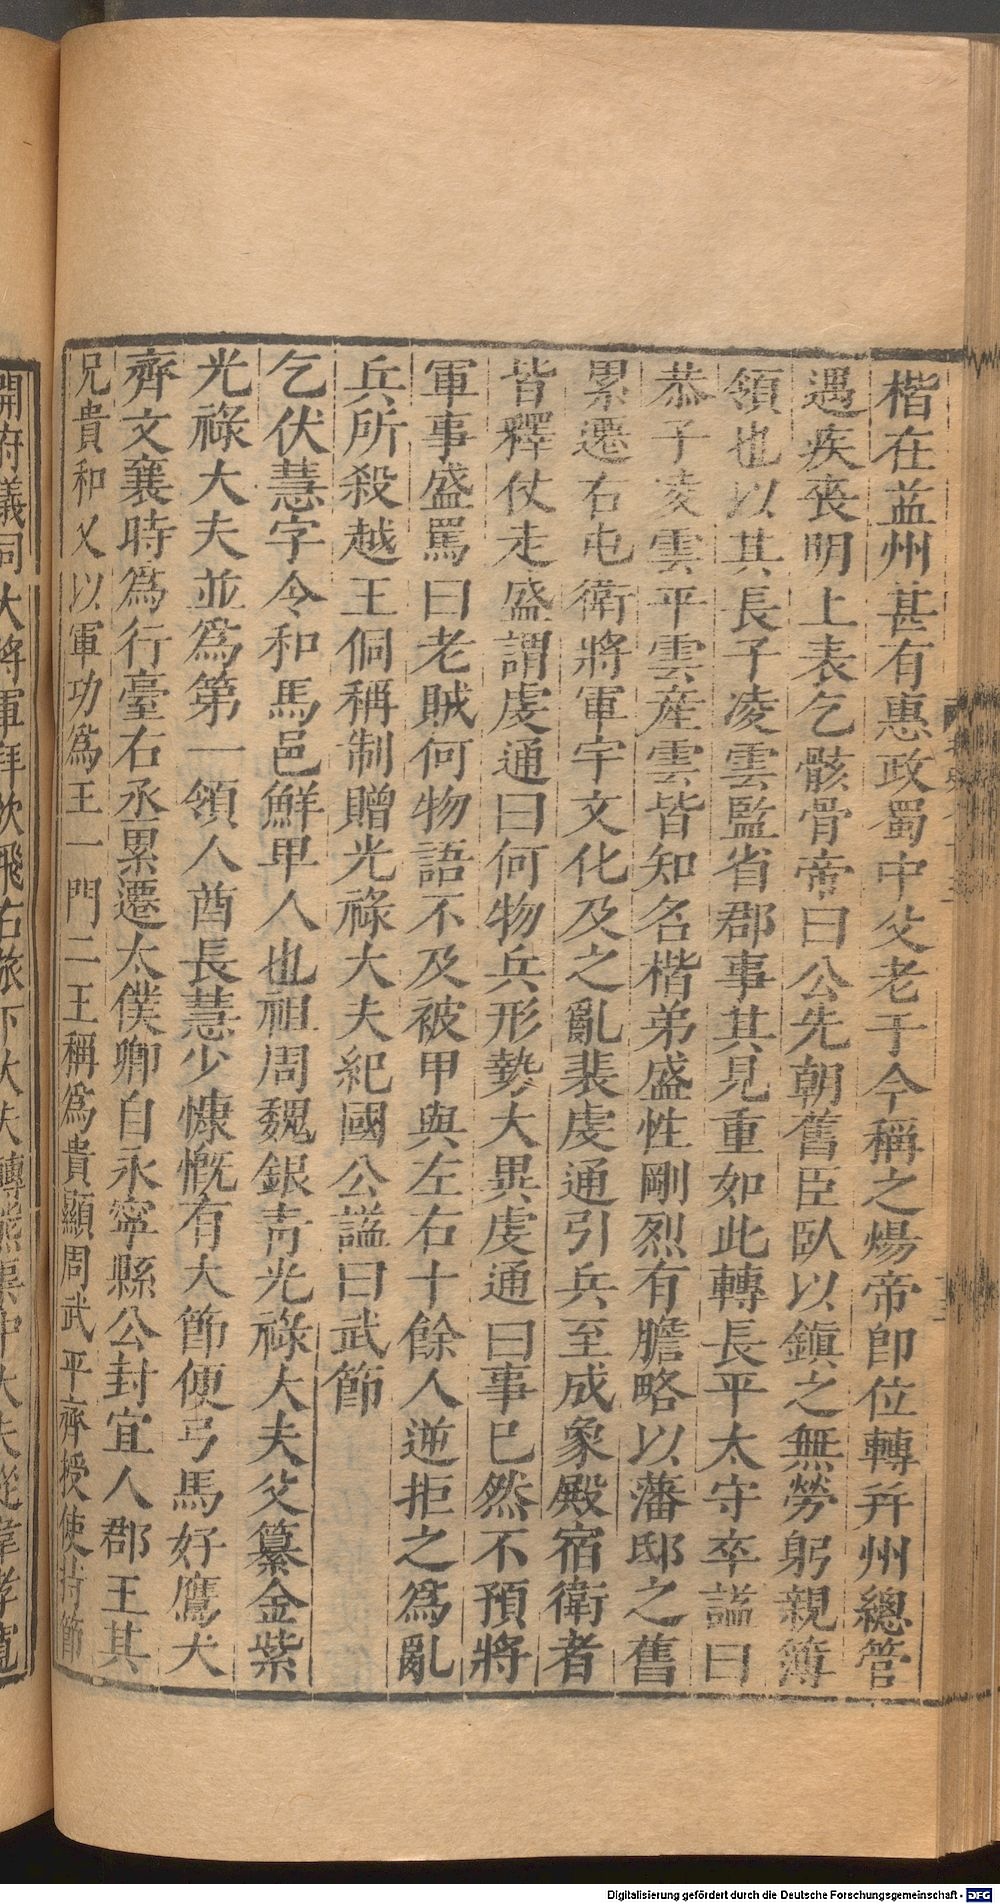 楷在益州甚有惠政蜀中父老于今稱之煬帝即位轉并州總管
遇疾喪明上表乞骸骨帝曰公先朝舊臣臥以鎮之無勞躬親簿
領也以其長子凌雲監省郡事其見重如此轉長平太守卒諡曰
恭子凌雲平雲產雲皆知名楷弟盛性剛烈有膽略以藩邸之舊
累遷右屯衛將軍宇文化及之亂裴虔通引兵至成象殿宿衛者
皆釋仗走盛謂虔通曰何物兵形勢大異虔通曰事已然不預將
軍事盛罵曰老賊何物語不及被甲與左右十餘人逆拒之為亂
兵所殺越王侗稱制贈光祿大夫紀國公諡曰武節
乞伏慧字令和馬邑鮮卑人也祖周魏銀青光祿大夫父纂金紫
光祿大夫並為第一領人酋長慧少慷慨有大節便弓馬好鷹犬
齊文襄時為行臺右丞累遷太僕卿自永寧縣公封宜人郡王其
兄貴和又以軍功為王一門二王稱為貴顯周武平齊授使持節
開府儀同大將軍拜佽飛右旅下大夫轉熊渠中大夫從韋孝寬
Digitalisierung gefördert durch die Deutsche Forschungsgemeinschaft - DFG